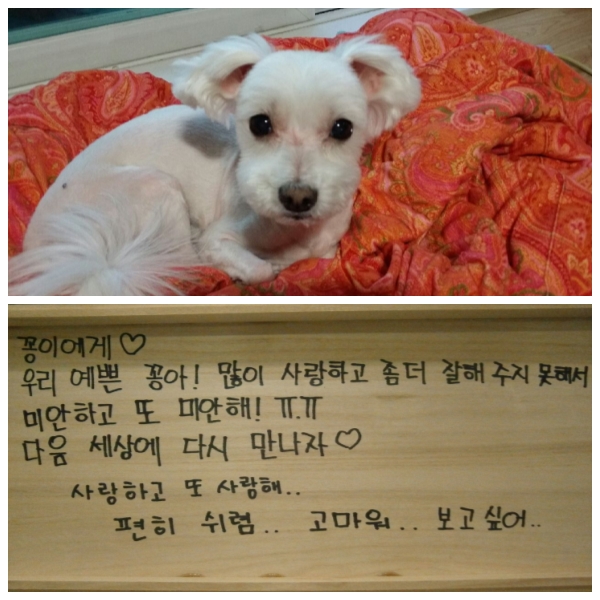 꽁이에게♡
우리 예쁜 꽁아! 많이 사랑하고 좀더 잘해 주지 못해서
미안하고 또 미안해! ㅠ.ㅠ
다음 세상에 다시 만나자♡
사랑하고 또 사랑해..
편히 쉬렴.. 고마워.. 보고싶어..